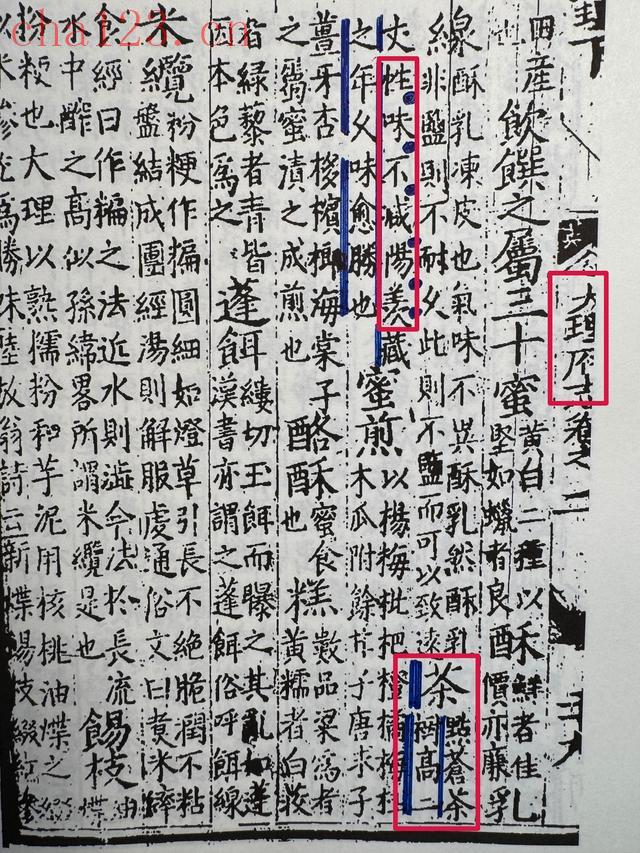 田產
飲饌之屬三十蜜黃白二種以酥鮮者佳乳
堅如蠟者良價亦廉
線酥乳凍皮也氣味不異酥乳然酥乳茶點蒼茶
非鹽則不耐久此則不鹽而可以致遠樹高二
丈性味不減陽羨藏蜜煎以楊梅枇杷橙橘梅
之年久味愈勝也木瓜附餘柑子唐求子
薑牙杏梭檳榔海棠子酪酥蜜食糕數品粱為者
之屬蜜漬之成煎也酪酥也黃糯者白茨
皆綠藜者青皆蓬餌縷切玉餌而曝之其亂如蓬
因本色為之漢書亦謂之蓬餌俗呼餌線
米纜粉粳作揙圓細如燈草引長不絕脆潤不粘
盤結成團經湯則解服虔通俗文曰煑米
食經曰作糒之法近水則澁今法於長流餳枝
水中酢之高似孫緯畧所謂米纜是也
粉粳也大理以熟糯粉和芋泥用核桃油煠之
以米為勝味陸放翁詩云新煠餳枝綴紅糝
大理府志卷之二
cha123.cn